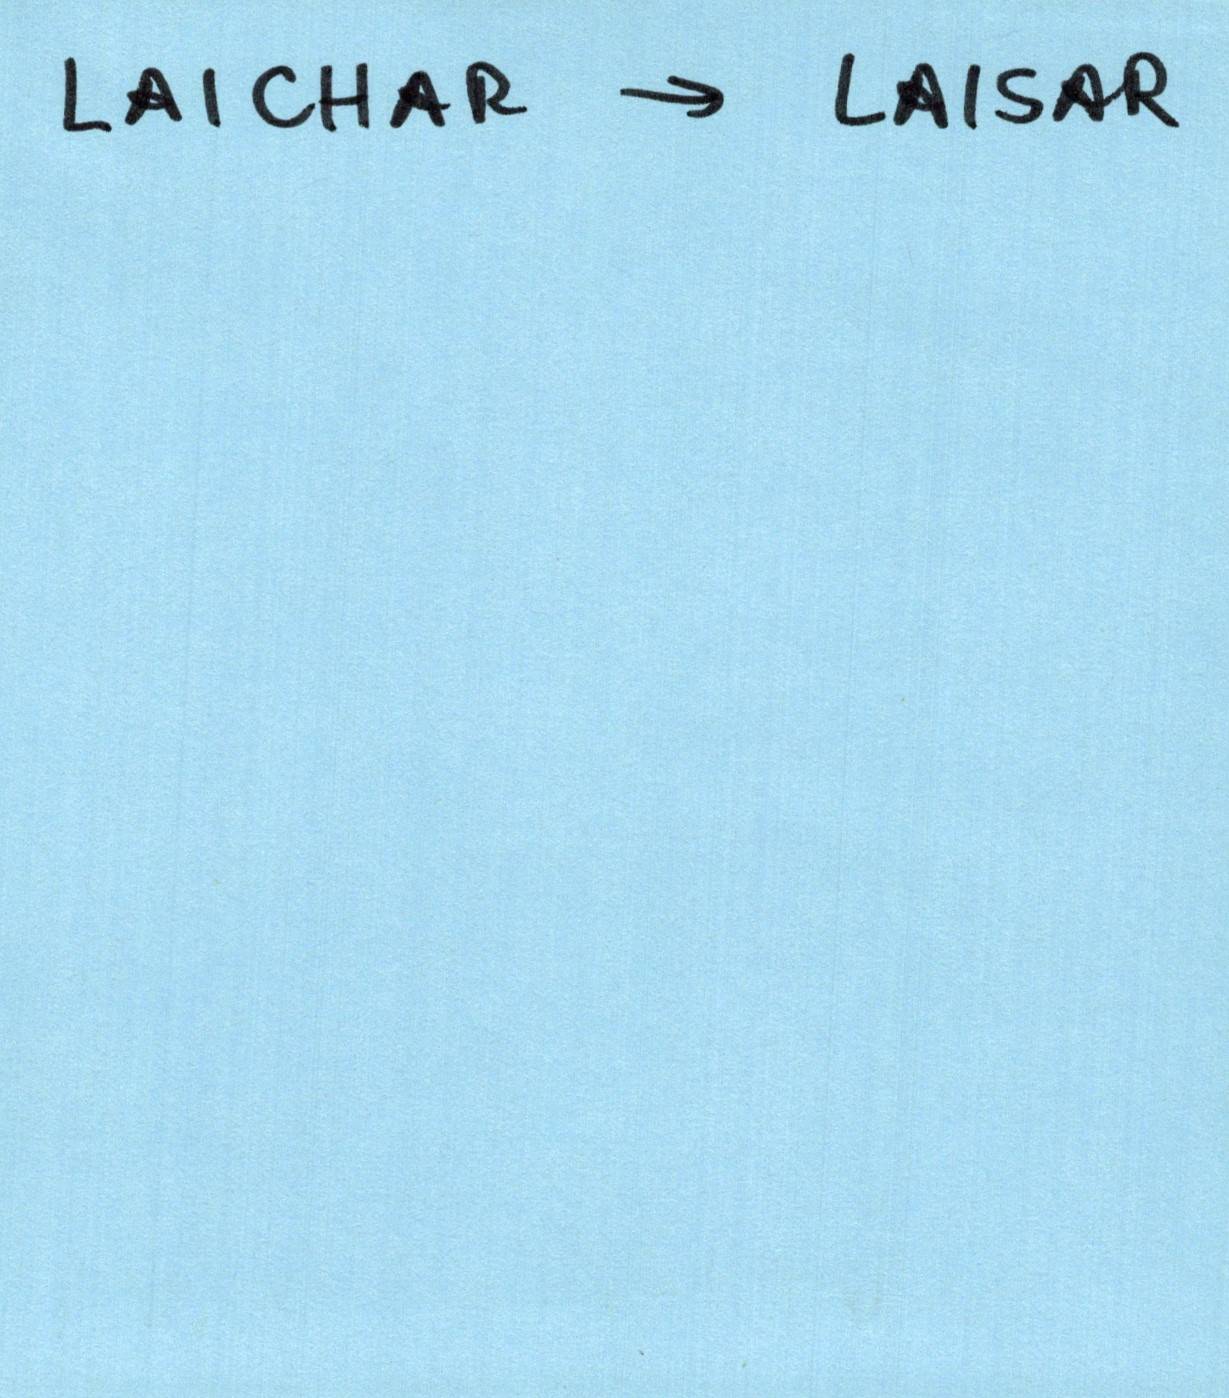 LAICHAR → LAISAR